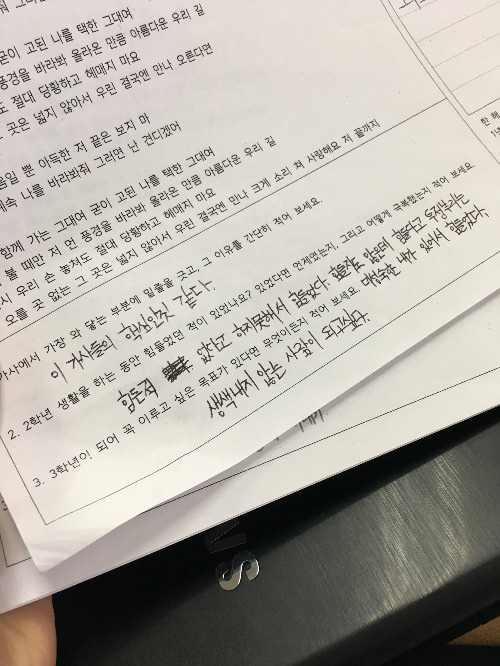 굳이 고된 나를 택한 그대여
풍경을 바라봐 올라온 만큼 아름다운 우리 길
도 절대 당황하고 헤매지 마요
곳은 넓지 않아서 우린 결국엔 만나 오른다면
음일 뿐 이득한 저 끝은 보지 마
계속 나를 바라봐줘 그러면 난 견디겠어
함께 가는 그대여 굳이 고된 나를 택한 그대여
볼 때만 저 먼 풍경을 바라봐 올라온 만큼 아름다운 우리 길
시 우리 손 놓쳐도 절대 당황하고 헤매지 마요
오를 곳 없는 그 곳은 넓지 않아서 우린 결국엔 만나 크게 소리 쳐 사랑해요 저 끝까지
가사에서 가장 와 닿는 부분에 밑줄을 긋고, 그 이유를 간단히 적어 보세요.
이 가사들이 핵심인것 같다.
2. 2학년 생활을 하는 동안 힘들었던 적이 있었나요? 있었다면 언제였는지, 그리고 어떻게 극복했는지 적어 보세요.
힘든적 많았고
3. 3학년이 되어 꼭 이루고 싶은 목표가 있다면 무엇이든지 적어 보세요.
생색내지 않는 사람이 되고싶다.
한 해